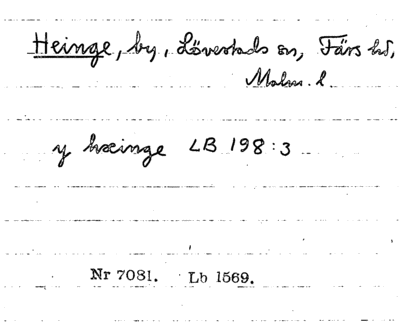 Heinge, by, Lövestads sn, Färs hd,
Malm. l.
y hæinge LB 198:3
Nr 7081. Lb 1569.